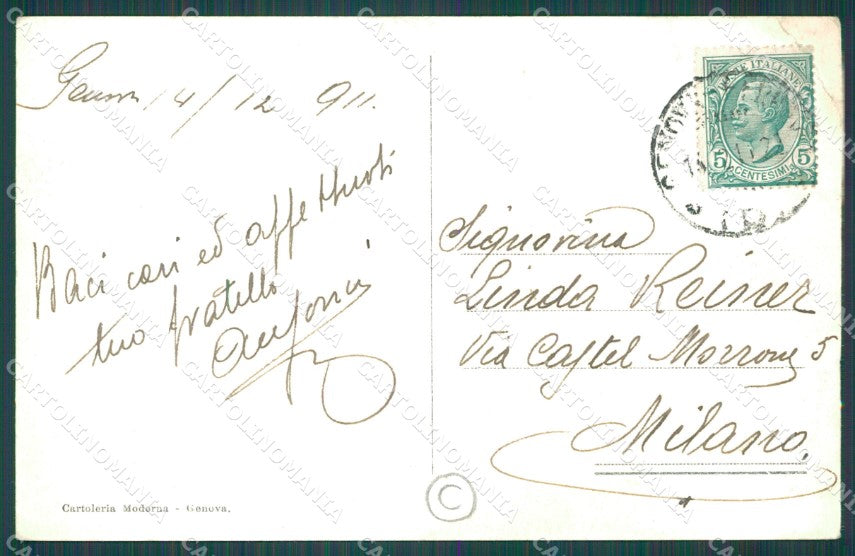 Genova 14/12 911.
Baci cari ed affettuosi
tuo fratello
POSTE ITALIANE
5 5
CENTESIMI
GENOVA
Signorina
Linda Reiner
Via Castel Morrone 5
Milano.
Cartoleria Moderna - Genova.
©
CARTOLINOMANIA